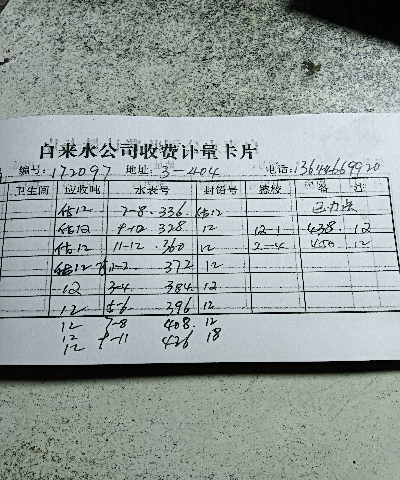 自来水公司收费计量卡片
编号:172097 地址:3-404 电话:13644669920
卫生间 应收吨 水表号 封铅号 备 注
估12 7-8. 336. 估12
估12 9-10 328 12 12-1 438. 12
估12 11-12 360 12 2-4 450 12
估12 1-2 372 12
12 3-4. 384 12
12 5-6 396 12
12 7-8 408. 12
12
12 9-11 426 18